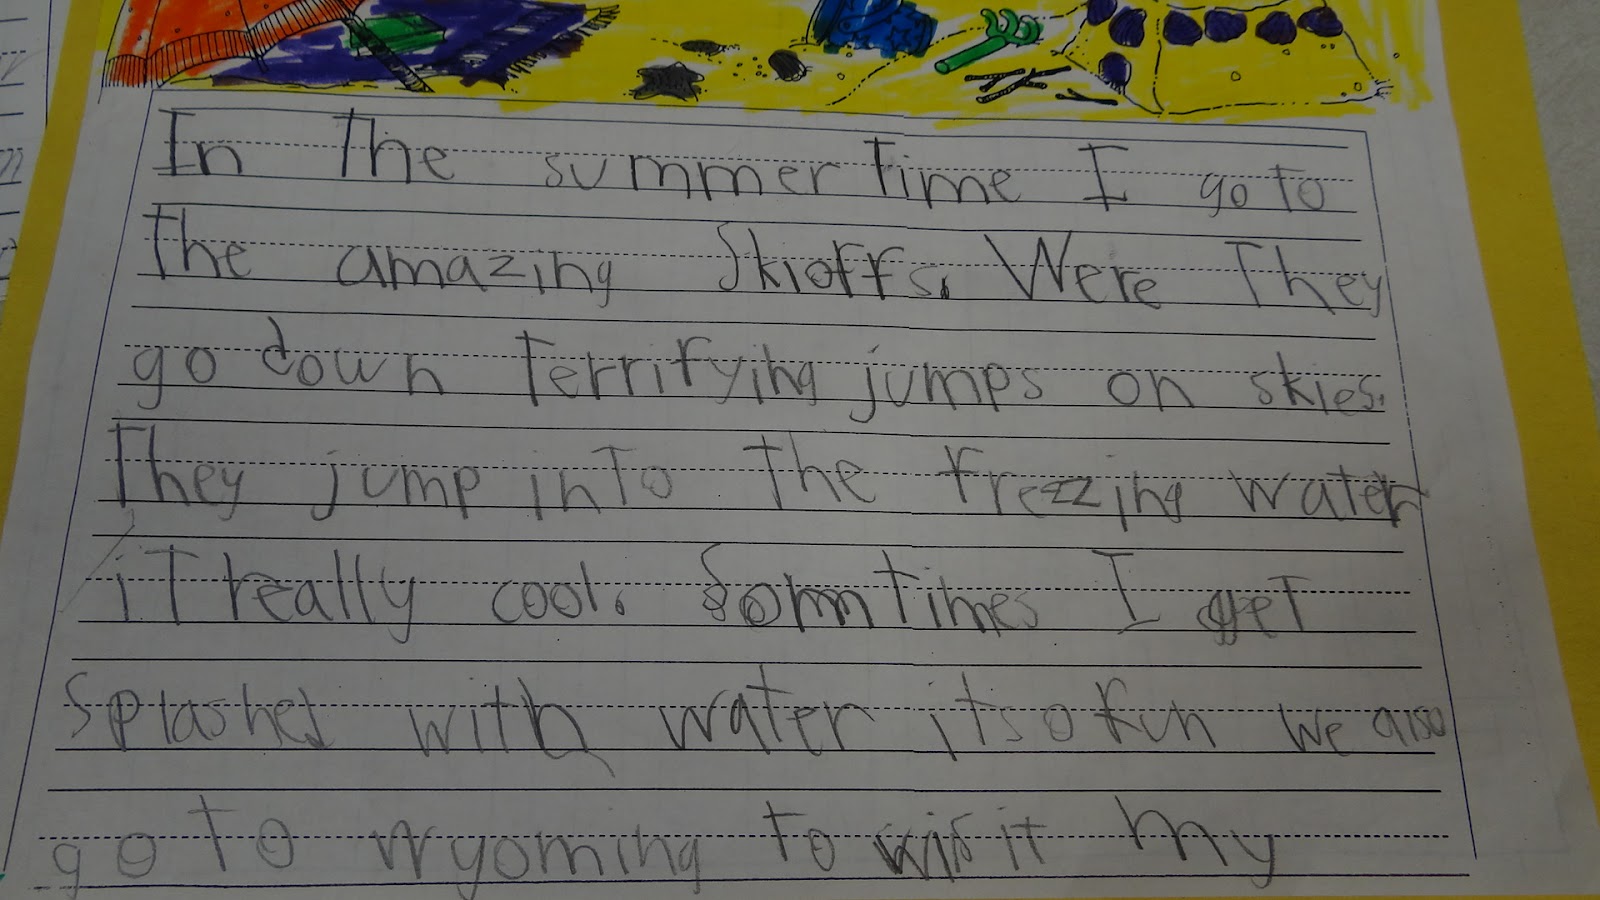 In The summer Time I go to
The amazing Skioffs. Were They
go down Terrifying jumps on skies.
They jump into The frezzing water
iT really cool. Somtimes I get
Splashed with water it so fun we also
go To wyoming To visit my